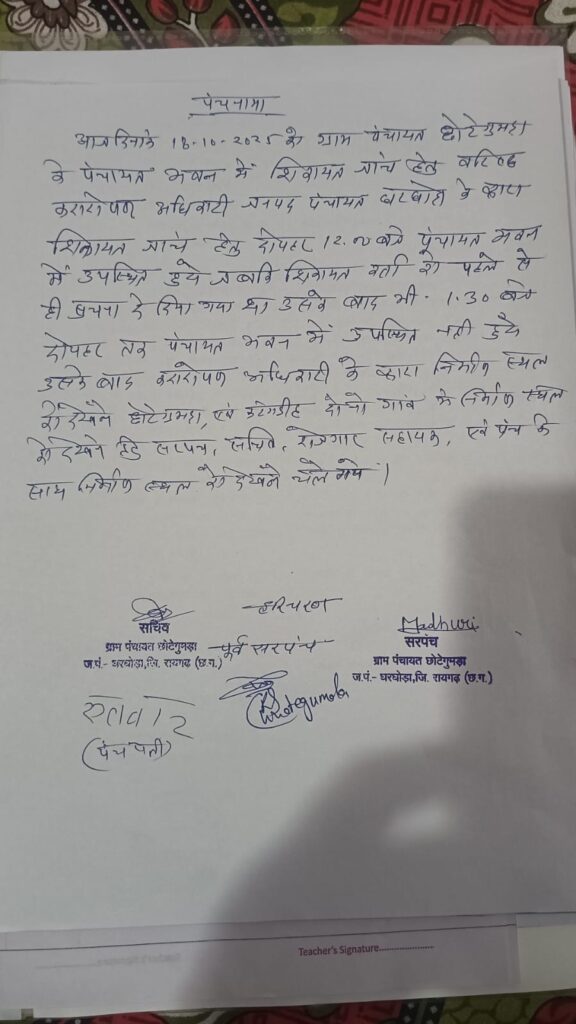 पंचनामा
आज दिनांक 13.10.2025 को ग्राम पंचायत छोटेगुमडा
के पंचायत भवन में शिकायत जांच हेतु वरिष्ठ
करारोपण अधिकारी जनपद पंचायत घरघोड़ा के द्वारा
शिकायत जांच हेतु दोपहर 12.00 बजे पंचायत भवन
में उपस्थित हुये जबकि शिकायत कर्ता को पहले से
ही सूचना दे दिया गया था उसके बाद भी 1.30 बजे
दोपहर तक पंचायत भवन में उपस्थित नही हुये
उसके बाद करारोपण अधिकारी के द्वारा निर्माण स्थल
को देखने छोटेगुमडा, एवं दोनो गांव के निर्माण स्थल
को देखने हेतु सरपंच, सचिव, रोजगार सहायक, एवं पंच के
साथ निर्माण स्थल को देखने चले गये।
सचिव
ग्राम पंचायत छोटेगुमड़ा
ज.पं.- घरघोड़ा,जि. रायगढ़ (छ.ग.)
हरिचरण
पूर्व सरपंच
Chhotegumda
Madhuri
सरपंच
ग्राम पंचायत छोटेगुमड़ा
ज.पं.- घरघोड़ा,जि. रायगढ़ (छ.ग.)
(पंच पती)
Teacher's Signature